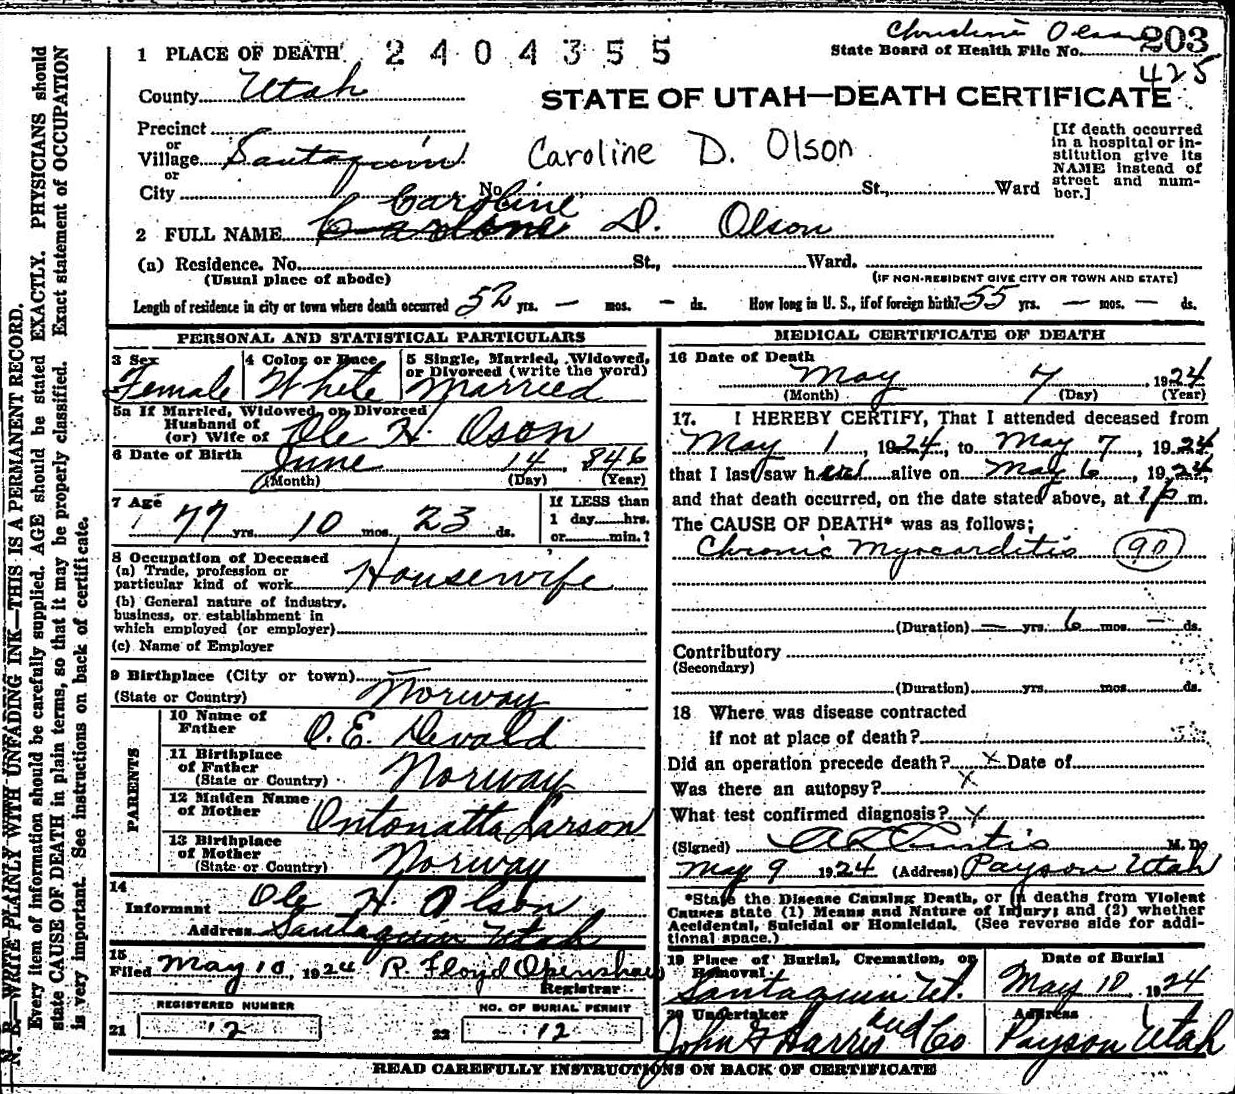 Christine Olson 203
State Board of Health File No.
425
1 PLACE OF DEATH 2404355
County Utah
STATE OF UTAH—DEATH CERTIFICATE
Precinct
or
Village Santaquin
or
City No. St., Ward
Caroline D. Olson
[If death occurred in a hospital or institution give its NAME instead of street and number.]
Caroline
2 FULL NAME D. Olson
(a) Residence. No. St., Ward.
(Usual place of abode) (IF NON-RESIDENT GIVE CITY OR TOWN AND STATE)
Length of residence in city or town where death occurred 52 yrs. — mos. — ds. How long in U. S., if of foreign birth? 55 yrs. — mos. — ds.
PERSONAL AND STATISTICAL PARTICULARS
3 Sex Female
4 Color or Race White
5 Single, Married, Widowed, or Divorced (write the word) Married
5a If Married, Widowed, or Divorced
Husband of
(or) Wife of Ole H. Oson
6 Date of Birth June 14, 846
(Month) (Day) (Year)
7 Age 77 yrs. 10 mos. 23 ds.
If LESS than
1 day hrs.
or min.?
8 Occupation of Deceased
(a) Trade, profession or
particular kind of work Housewife
(b) General nature of industry,
business, or establishment in
which employed (or employer)
(c) Name of Employer
9 Birthplace (City or town)
(State or Country) Norway
PARENTS
10 Name of
Father O. E. Devold
11 Birthplace
of Father
(State or Country) Norway
12 Maiden Name
of Mother Ontonatta Larson
13 Birthplace
of Mother
(State or Country) Norway
14
Informant Ole H. Olson
Address Santaquin Utah
15
Filed May 10, 1924 R. Floyd Openshaw
Registrar
REGISTERED NUMBER
NO. OF BURIAL PERMIT
21 12
22 12
MEDICAL CERTIFICATE OF DEATH
16 Date of Death
May 7, 1924
(Month) (Day) (Year)
17. I HEREBY CERTIFY, That I attended deceased from
May 1, 1924, to May 7, 1924
that I last saw h alive on May 6, 1924,
and that death occurred, on the date stated above, at 1 p m.
The CAUSE OF DEATH* was as follows:
Chronic Myocarditis 90
(Duration) — yrs. 6 mos. — ds.
Contributory
(Secondary)
(Duration) yrs. mos. ds.
18 Where was disease contracted
if not at place of death?
Did an operation precede death? x Date of
Was there an autopsy? x
What test confirmed diagnosis? x
(Signed) A L Curtis M. D.
May 9 1924 (Address) Payson Utah
*State the Disease Causing Death, or in deaths from Violent
Causes state (1) Means and Nature of Injury; and (2) whether
Accidental, Suicidal or Homicidal. (See reverse side for addi-
tional space.)
19 Place of Burial, Cremation, or
Removal
Santaquin Ut.
Date of Burial
May 10, 1924
20 Undertaker
John G Harris and Co
Address
Payson Utah
READ CAREFULLY INSTRUCTIONS ON BACK OF CERTIFICATE
N. B.—WRITE PLAINLY WITH UNFADING INK—THIS IS A PERMANENT RECORD.
Every item of information should be carefully supplied. AGE should be stated EXACTLY. PHYSICIANS should
state CAUSE OF DEATH in plain terms, so that it may be properly classified. Exact statement of OCCUPATION
is very important. See instructions on back of certificate.